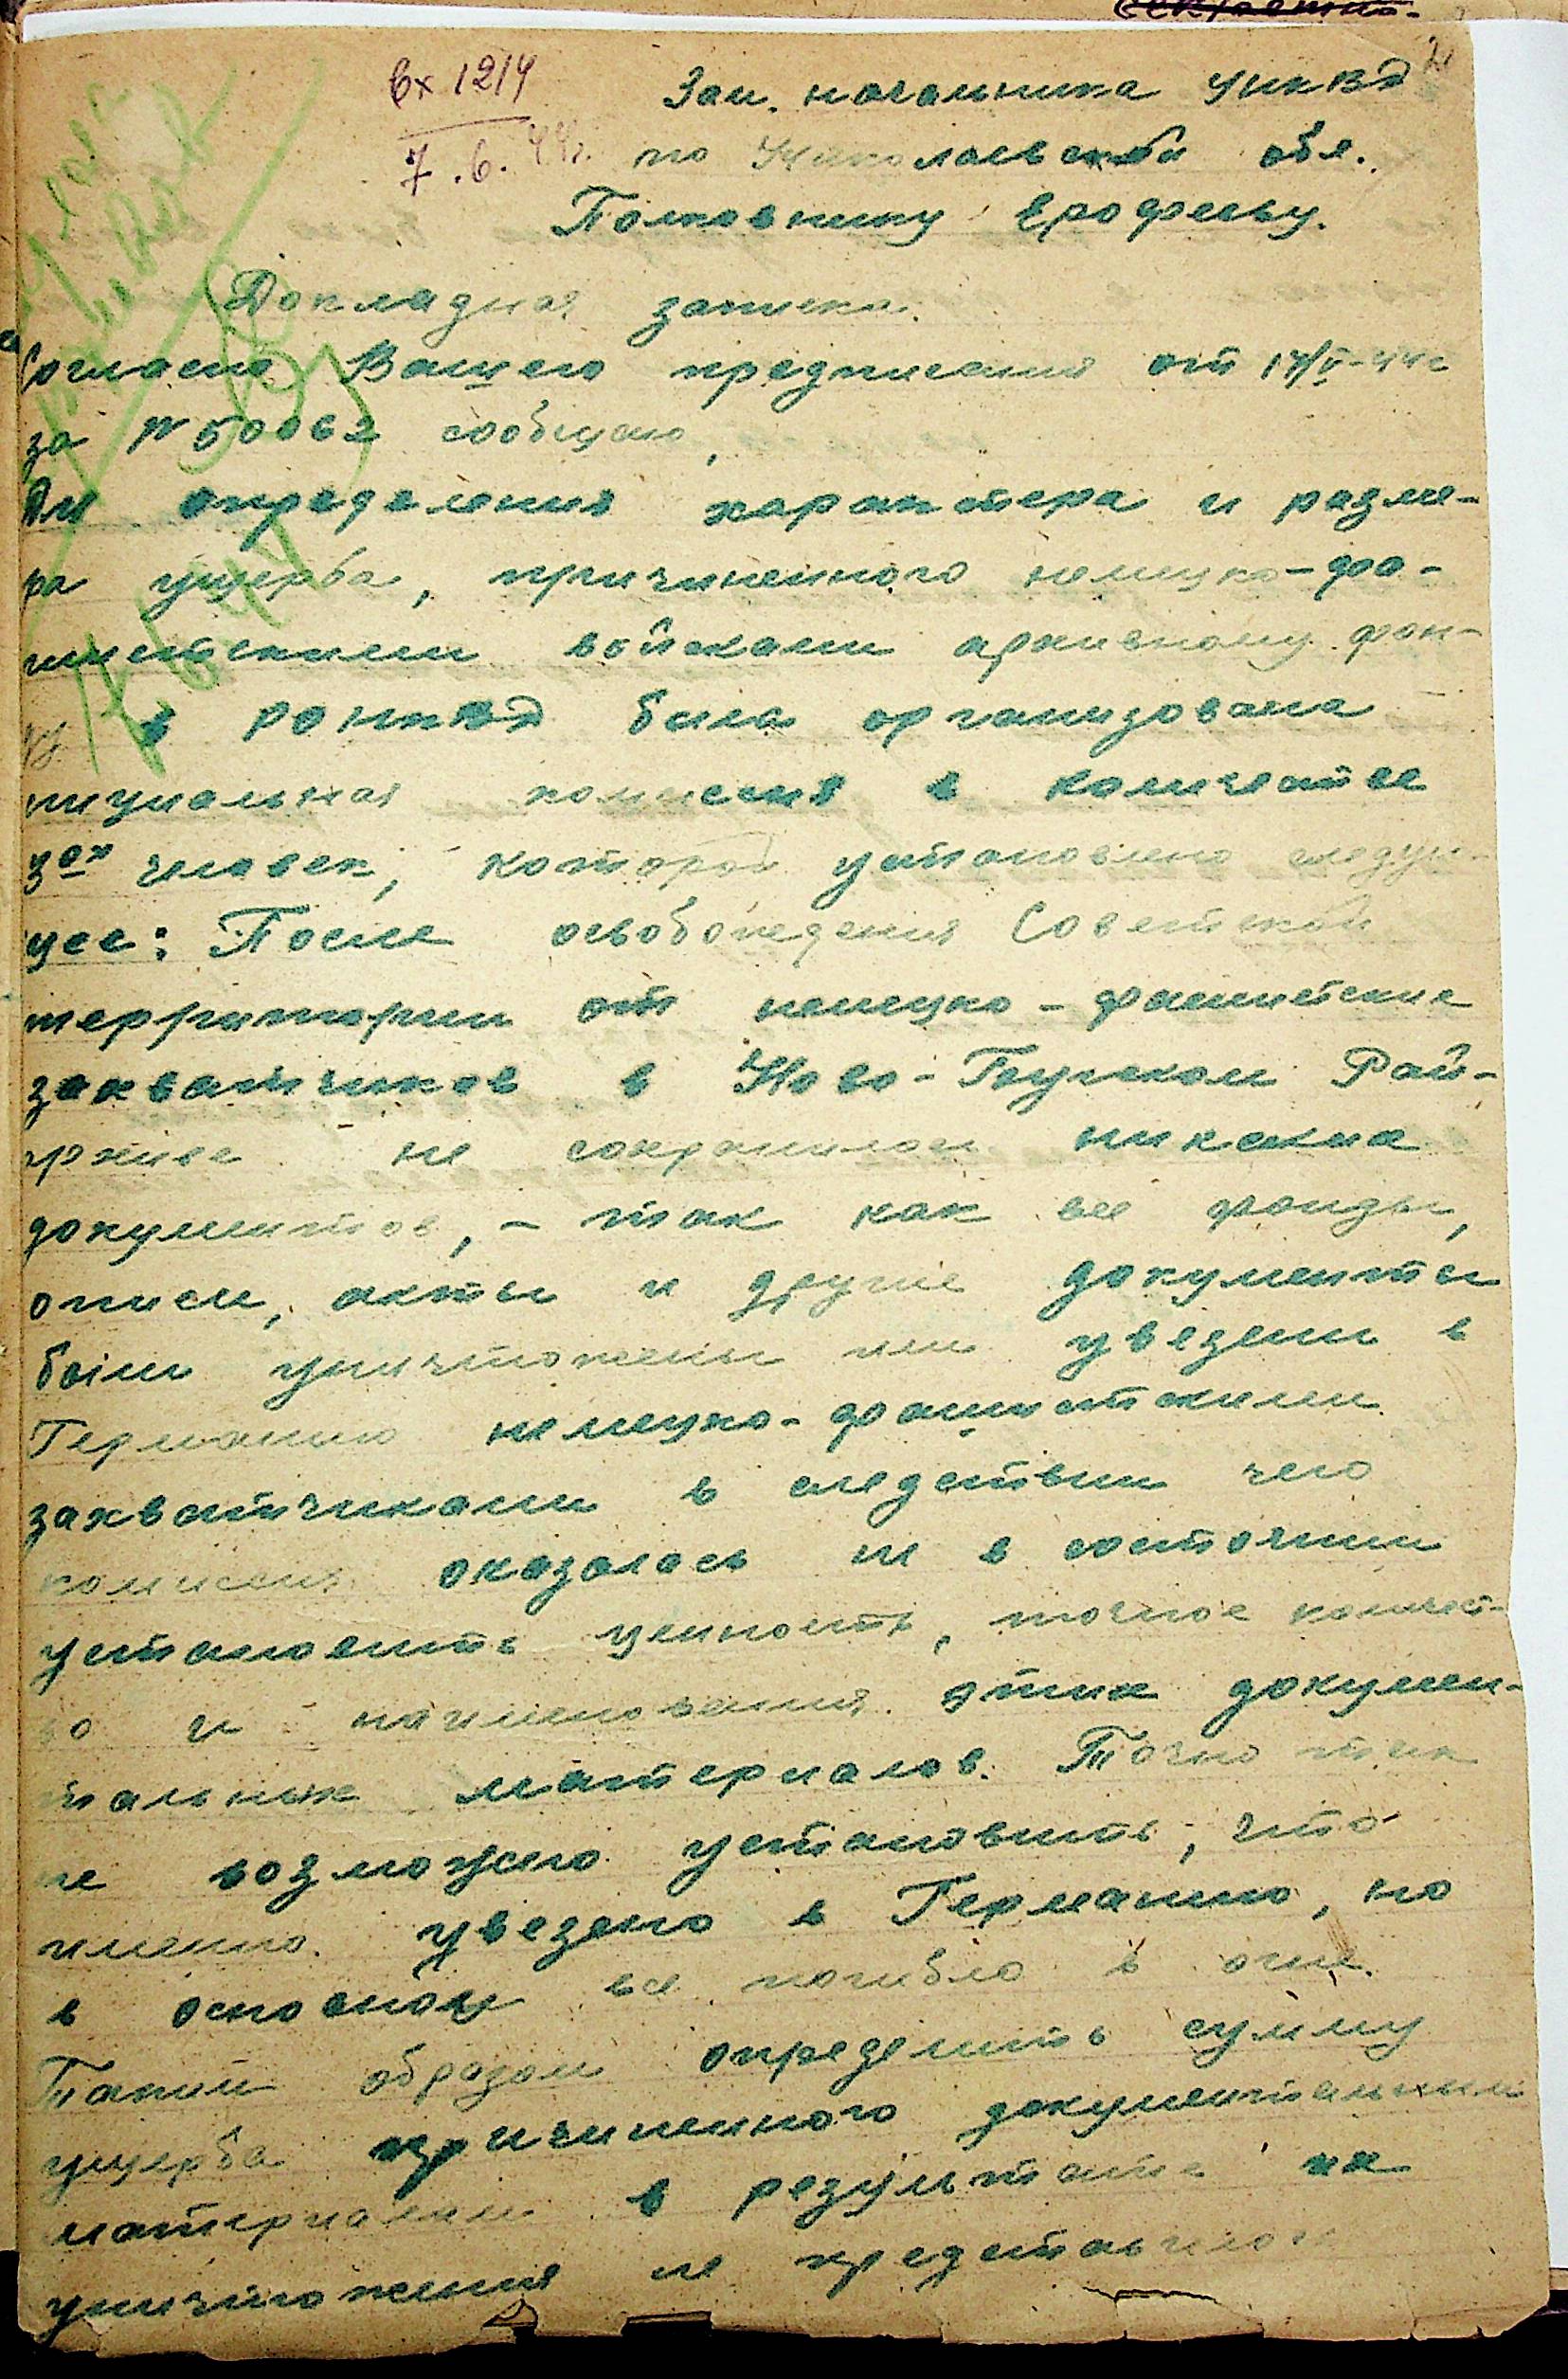 Секретно.
Вх 1214
7.6.44г.
Зам. начальника УНКВД
по Николаевской обл.
Полковнику Ерофееву.
Докладная записка.
Согласно Вашего предписания от 17/V-44г
за № 50062 сообщаю,
Для определения характера и разме-
ра ущерба, причиненного немецко-фа-
шистскими войсками архивному фон-
ду в РОНКВД была организована
специальная комиссия в количестве
3ох человек, которой установлено следую-
щее: После освобождения Советской
территории от немецко-фашистских
захватчиков в Ново-Бугском Рай-
архиве не сохранилось никаких
документов, - так как все фонды,
описи, акты и другие документы
были уничтожены или увезены в
Германию немецко-фашистскими
захватчиками в следствии чего
комиссия оказалась не в состоянии
установить ценность, точное количест-
во и наименования этих докумен-
тальных материалов. Точно так
не возможно установить, что
именно увезено в Германию, но
в основном все погибло в огне.
Таким образом определить сумму
ущерба причиненного документальным
материалам в результате их
уничтожения не представилось